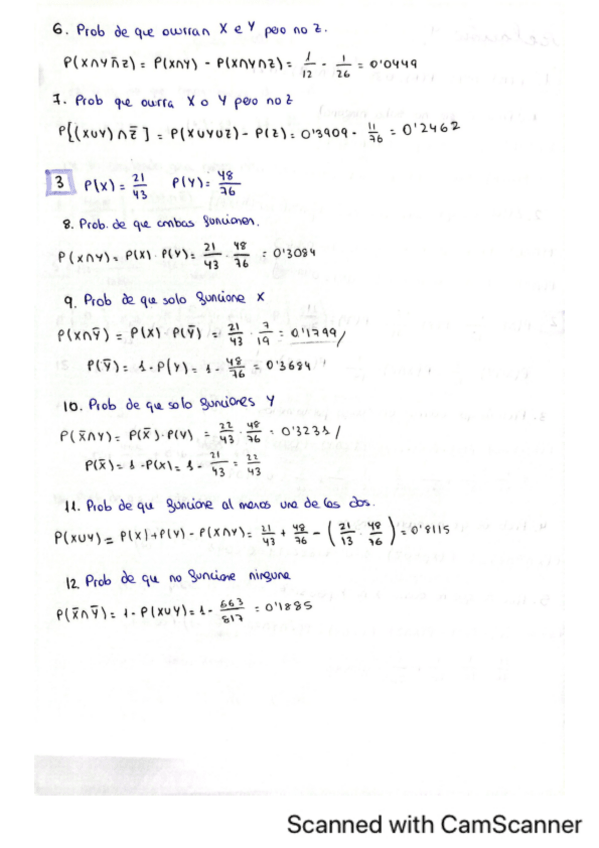 6. Prob de que ocurran X e Y pero no Z.
P(X∩Y∩z̄) = P(X∩Y) - P(X∩Y∩Z) = 1/12 - 1/26 = 0'0449
7. Prob que ocurra X o Y pero no Z
P[(XUY) ∩ z̄] = P(XUYUZ) - P(Z) = 0'3909 - 11/76 = 0'2462
3 P(X) = 21/43 P(Y) = 48/76
8. Prob. de que ambas funcionen.
P(X∩Y) = P(X) · P(Y) = 21/43 · 48/76 = 0'3084
9. Prob de que solo funcione X
P(X∩Ȳ) = P(X) · P(Ȳ) = 21/43 · 7/19 = 0'1799/
P(Ȳ) = 1 - P(Y) = 1 - 48/76 = 0'3684
10. Prob de que solo funciones Y
P(X̄∩Y) = P(X̄) · P(Y) = 22/43 · 48/76 = 0'3231/
P(X̄) = 1 - P(X) = 1 - 21/43 = 22/43
11. Prob de que funcione al menos una de las dos.
P(XUY) = P(X) + P(Y) - P(X∩Y) = 21/43 + 48/76 - (21/13 · 48/76) = 0'8115
12. Prob de que no funcione ninguna
P(X̄∩Ȳ) = 1 - P(XUY) = 1 - 663/817 = 0'1885
Scanned with CamScanner